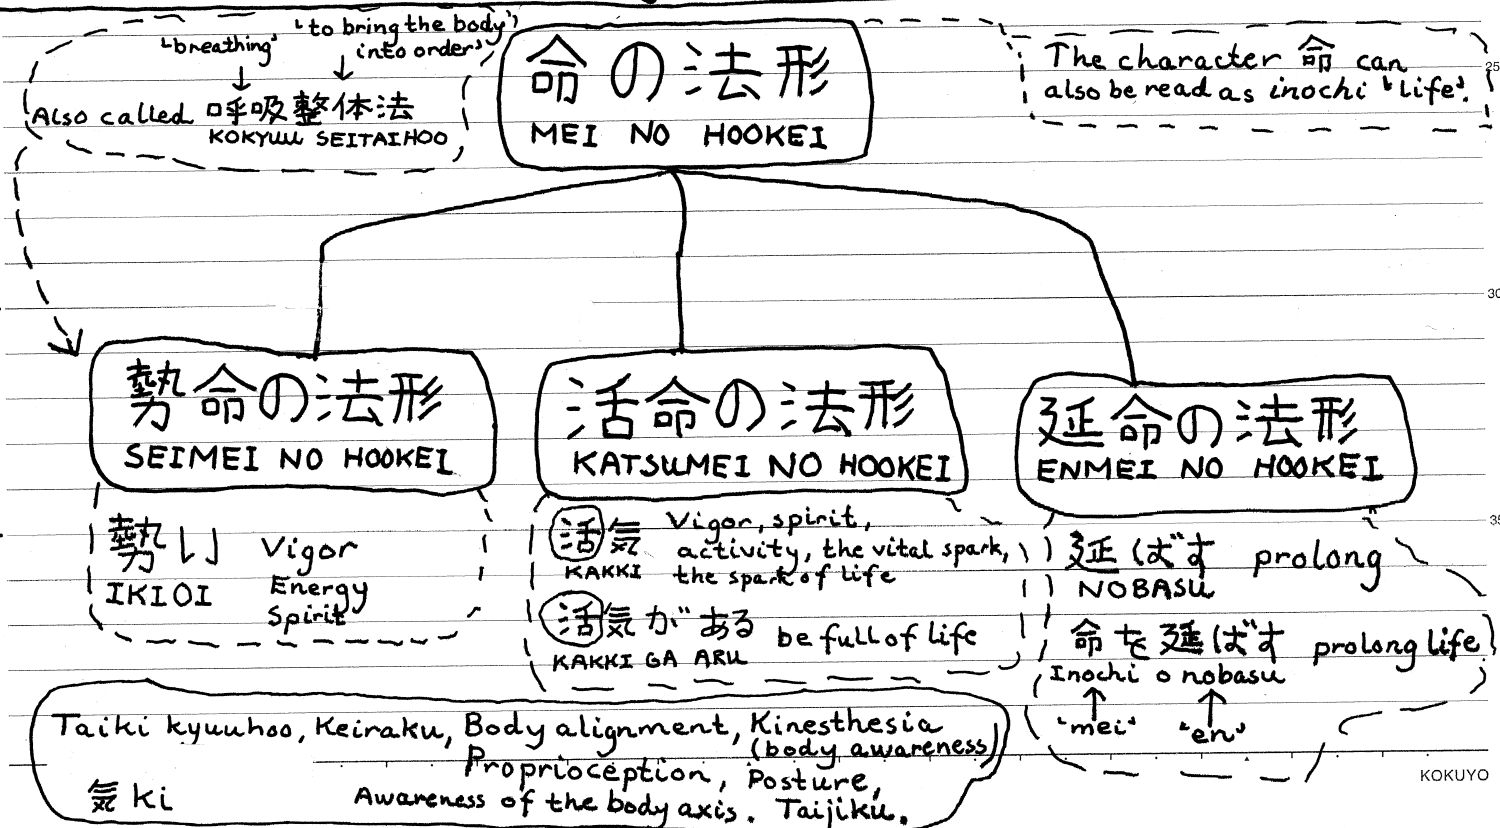 'breathing'
'to bring the body
into order'
Also called 呼吸整体法
KOKYUU SEITAIHOO
命の法形
MEI NO HOOKEI
The character 命 can
also be read as inochi 'life'.
25
30
勢命の法形
SEIMEI NO HOOKEI
勢い
IKIOI
Vigor
Energy
Spirit
活命の法形
KATSUMEI NO HOOKEI
活気
KAKKI
Vigor, spirit,
activity, the vital spark,
the spark of life
活気がある
KAKKI GA ARU
be full of life
延命の法形
ENMEI NO HOOKEI
35
延ばす prolong
NOBASU
命を延ばす prolong life
Inochi o nobasu
'mei' 'en'
Taiki kyuuhoo, Keiraku, Body alignment, Kinesthesia
(body awareness)
Proprioception, Posture,
気 ki
Awareness of the body axis. Taijiku.
KOKUYO